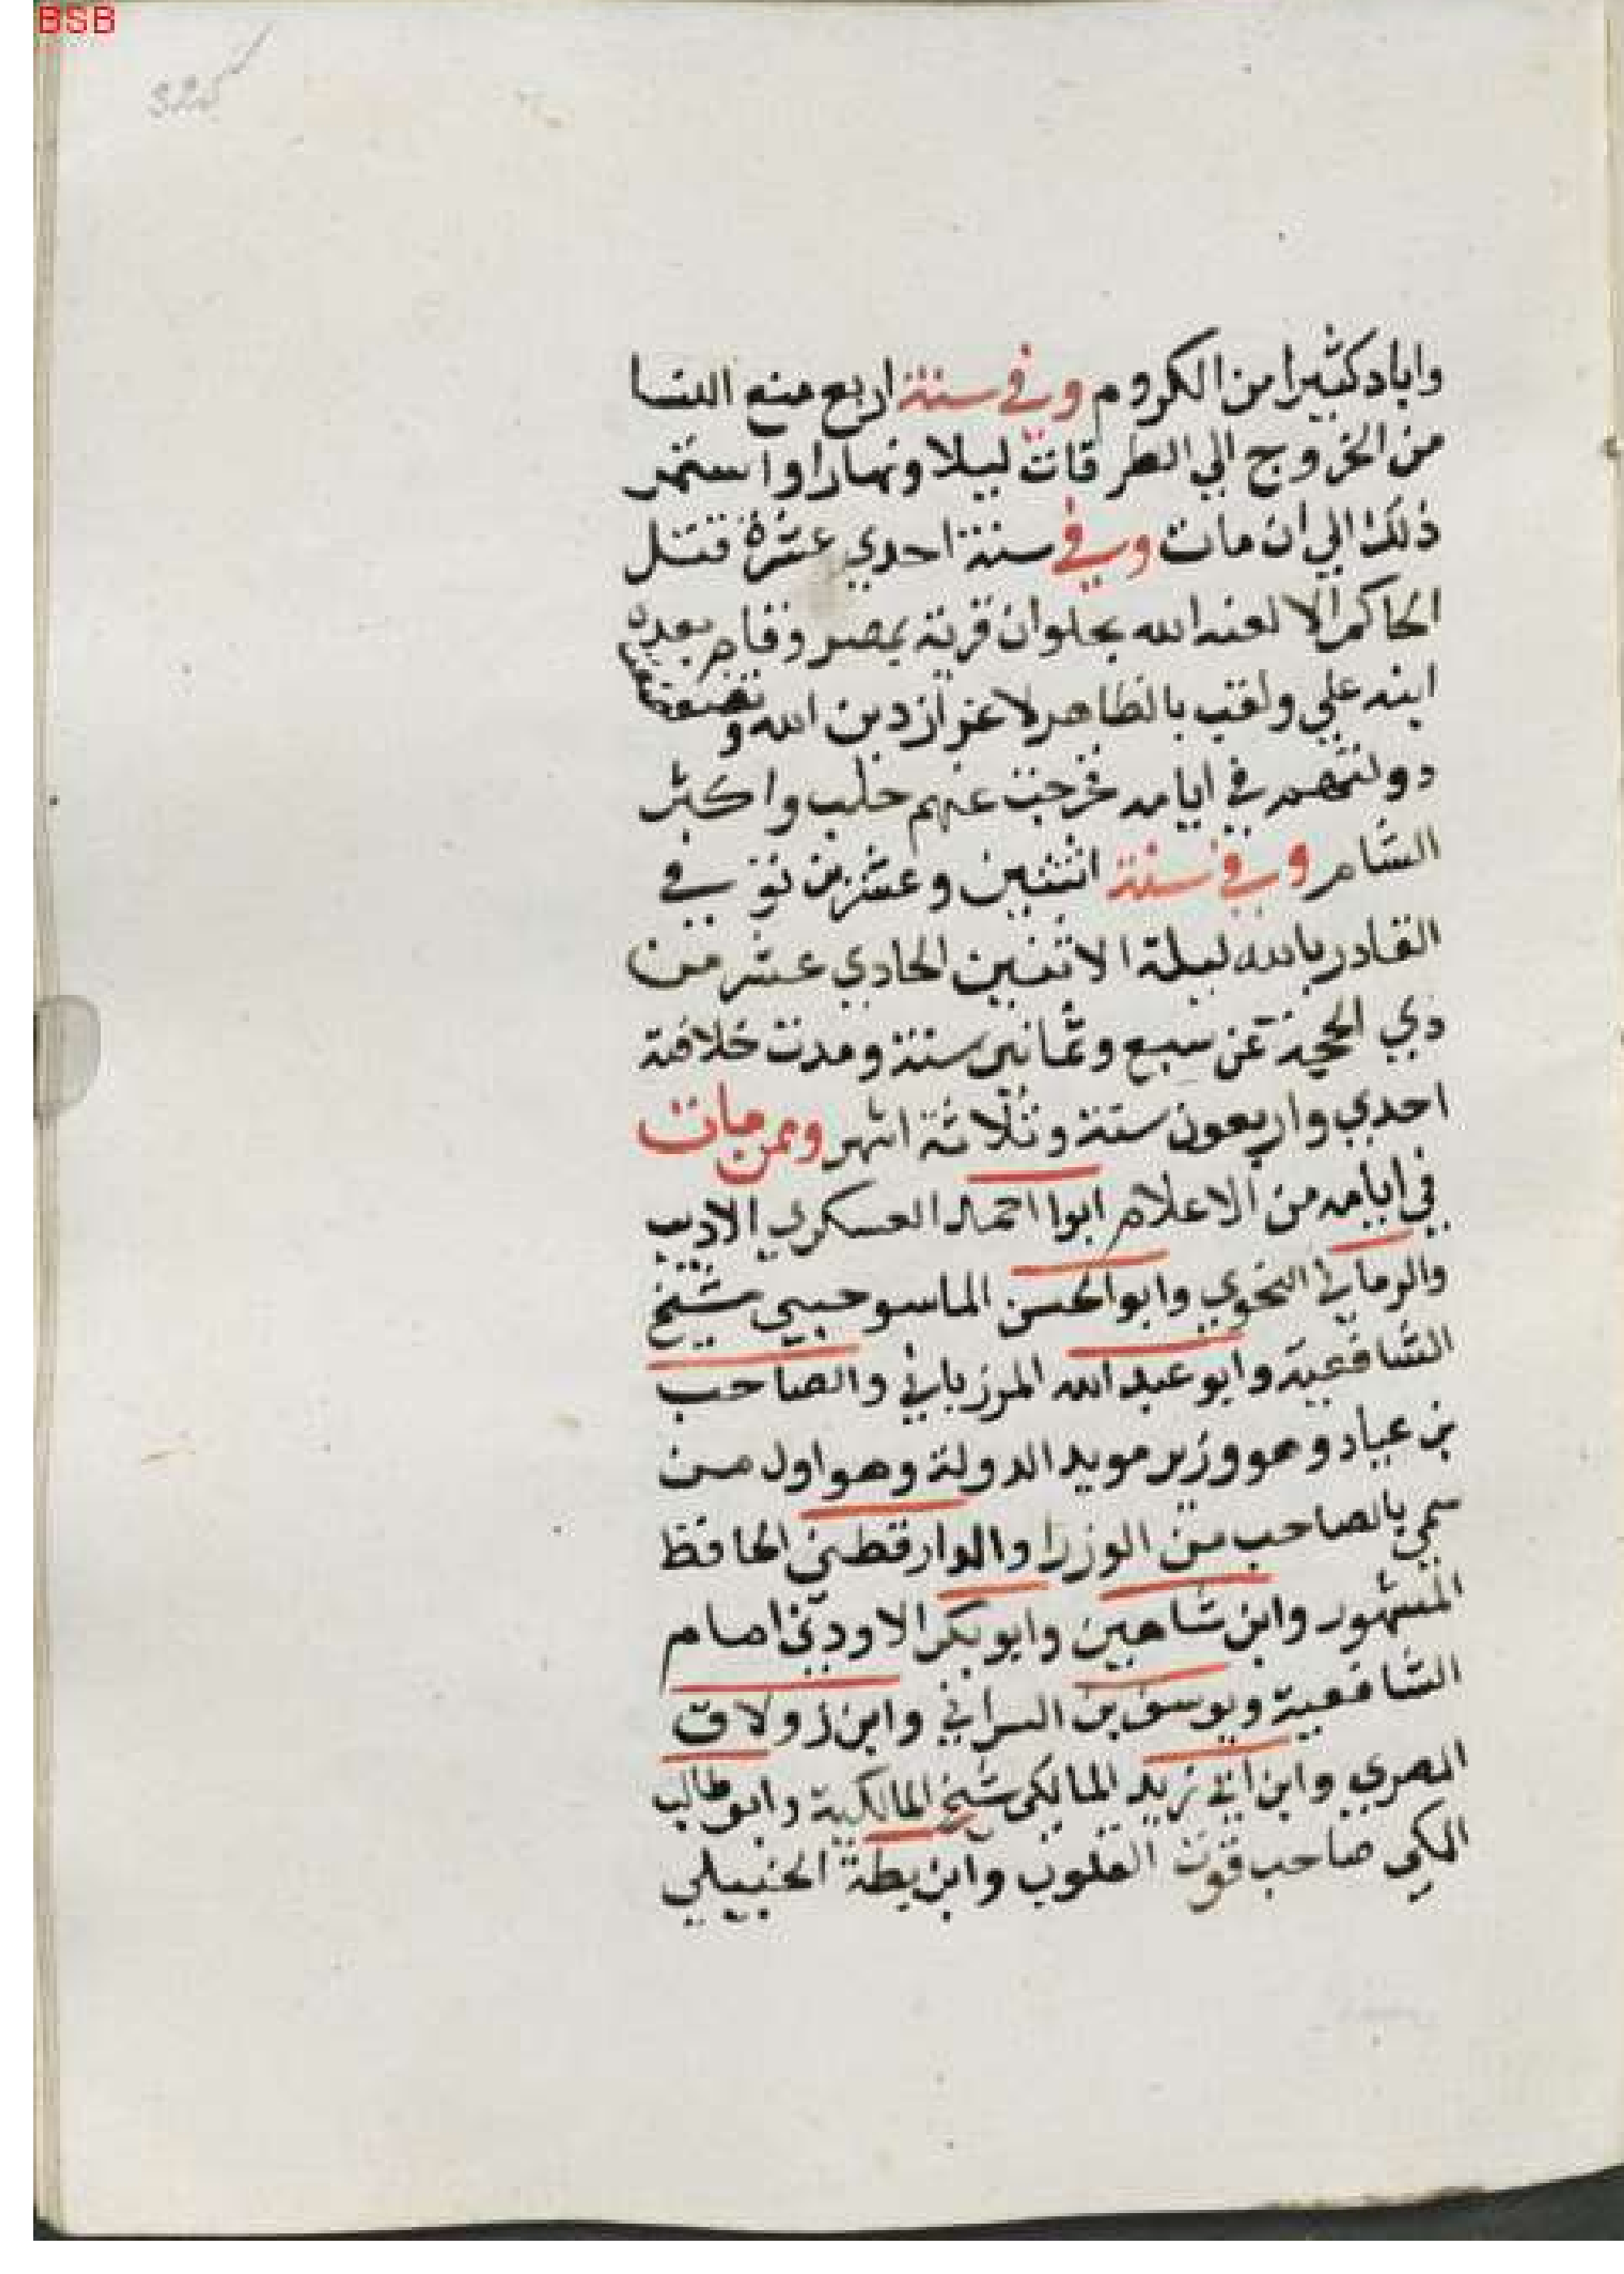 BSB
325
واباد كثيرا من الكروم وفي سنة اربع منع النسا
من الخروج الي الطرقات ليلا ونهارا واستمر
ذلك الي ان مات وفي سنة احدي عشرة قتل
الحاكم لعنه الله بحلوان قرية بمصر وقام بعده
ابنه علي ولقب بالظاهر لاعزاز دين الله و
دولتهم في ايامه فخرجت عنهم حلب واكثر
الشام وفي سنة اثنتين وعشرين توفي
القادر بالله ليلة الاثنين الحادي عشر من
ذي الحجة عن سبع وثمانين سنة ومدت خلافته
احدي واربعون سنة وثلاثة اشهر وممن مات
في ايامه من الاعلام ابوا احمد العسكري الاديب
والرماني النحوي وابو الحسن الماسوحبيي شيخ
الشافعية وابو عبد الله المرزباني والصاحب
بن عباد وهو وزير مويد الدولة وهو اول من
سمي بالصاحب من الوزرا والدارقطني الحافظ
المشهور وابن شاهين وابو بكر الاودني امام
الشافعية ويوسف بن السرافي وابن زولاق
المصري وابن ابي زيد المالكي شيخ المالكية وابو طالب
المكي صاحب قوت القلوب وابن بطة الحنبلي